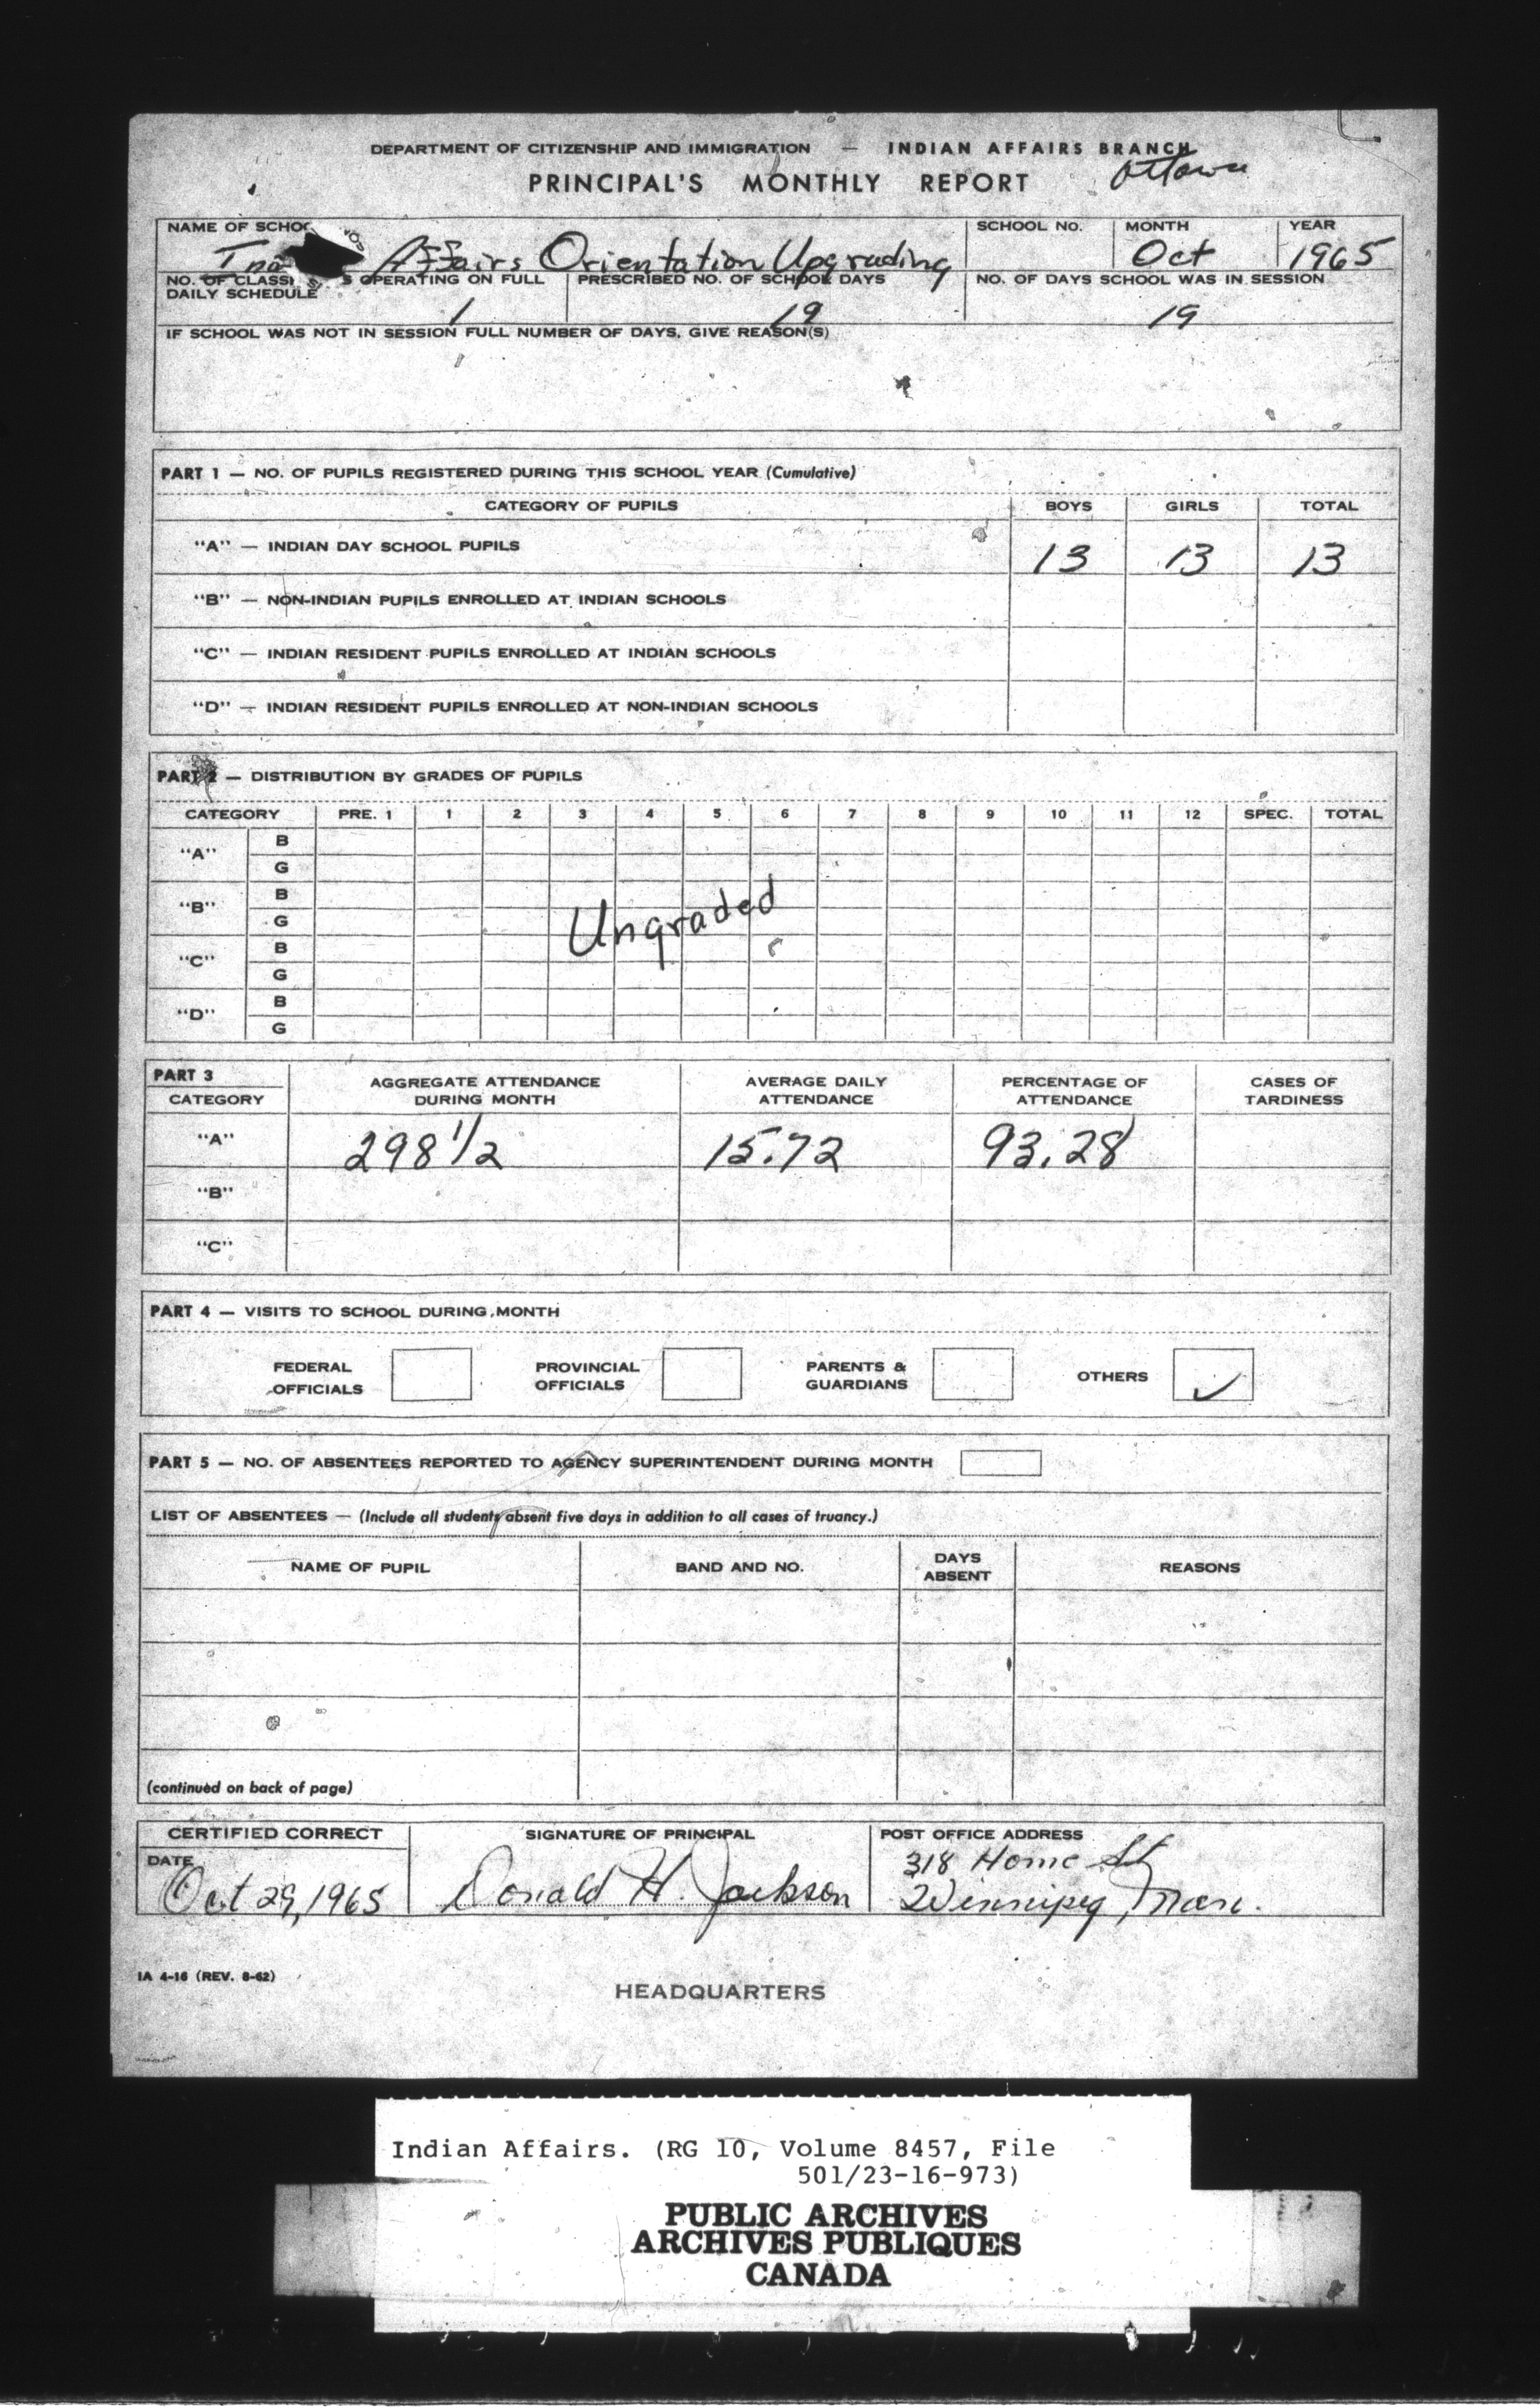 DEPARTMENT OF CITIZENSHIP AND IMMIGRATION — INDIAN AFFAIRS BRANCH
Ottawa
PRINCIPAL'S MONTHLY REPORT
NAME OF SCHOO SCHOOL NO. MONTH YEAR
Affairs Orientation Upgrading Oct 1965
NO. OF CLASS S OPERATING ON FULL PRESCRIBED NO. OF SCHOOL DAYS NO. OF DAYS SCHOOL WAS IN SESSION
DAILY SCHEDULE
1 19 19
IF SCHOOL WAS NOT IN SESSION FULL NUMBER OF DAYS, GIVE REASON(S)
PART 1 — NO. OF PUPILS REGISTERED DURING THIS SCHOOL YEAR (Cumulative)
CATEGORY OF PUPILS BOYS GIRLS TOTAL
"A" — INDIAN DAY SCHOOL PUPILS 13 13 13
"B" — NON-INDIAN PUPILS ENROLLED AT INDIAN SCHOOLS
"C" — INDIAN RESIDENT PUPILS ENROLLED AT INDIAN SCHOOLS
"D" — INDIAN RESIDENT PUPILS ENROLLED AT NON-INDIAN SCHOOLS
PART 2 — DISTRIBUTION BY GRADES OF PUPILS
CATEGORY PRE. 1 1 2 3 4 5 6 7 8 9 10 11 12 SPEC. TOTAL
"A" B
G
"B" B
G
Ungraded
"C" B
G
"D" B
G
PART 3
CATEGORY
AGGREGATE ATTENDANCE DURING MONTH
AVERAGE DAILY ATTENDANCE
PERCENTAGE OF ATTENDANCE
CASES OF TARDINESS
"A" 298 1/2 15.72 93.28
"B"
"C"
PART 4 — VISITS TO SCHOOL DURING MONTH
FEDERAL OFFICIALS
PROVINCIAL OFFICIALS
PARENTS & GUARDIANS
OTHERS ✓
PART 5 — NO. OF ABSENTEES REPORTED TO AGENCY SUPERINTENDENT DURING MONTH
LIST OF ABSENTEES — (Include all students absent five days in addition to all cases of truancy.)
NAME OF PUPIL BAND AND NO. DAYS ABSENT REASONS
(continued on back of page)
CERTIFIED CORRECT SIGNATURE OF PRINCIPAL POST OFFICE ADDRESS
DATE 318 Home St
Oct 29, 1965 Donald H. Jackson Winnipeg, Man.
IA 4-16 (REV. 8-62)
HEADQUARTERS
Indian Affairs. (RG 10, Volume 8457, File
501/23-16-973)
PUBLIC ARCHIVES
ARCHIVES PUBLIQUES
CANADA